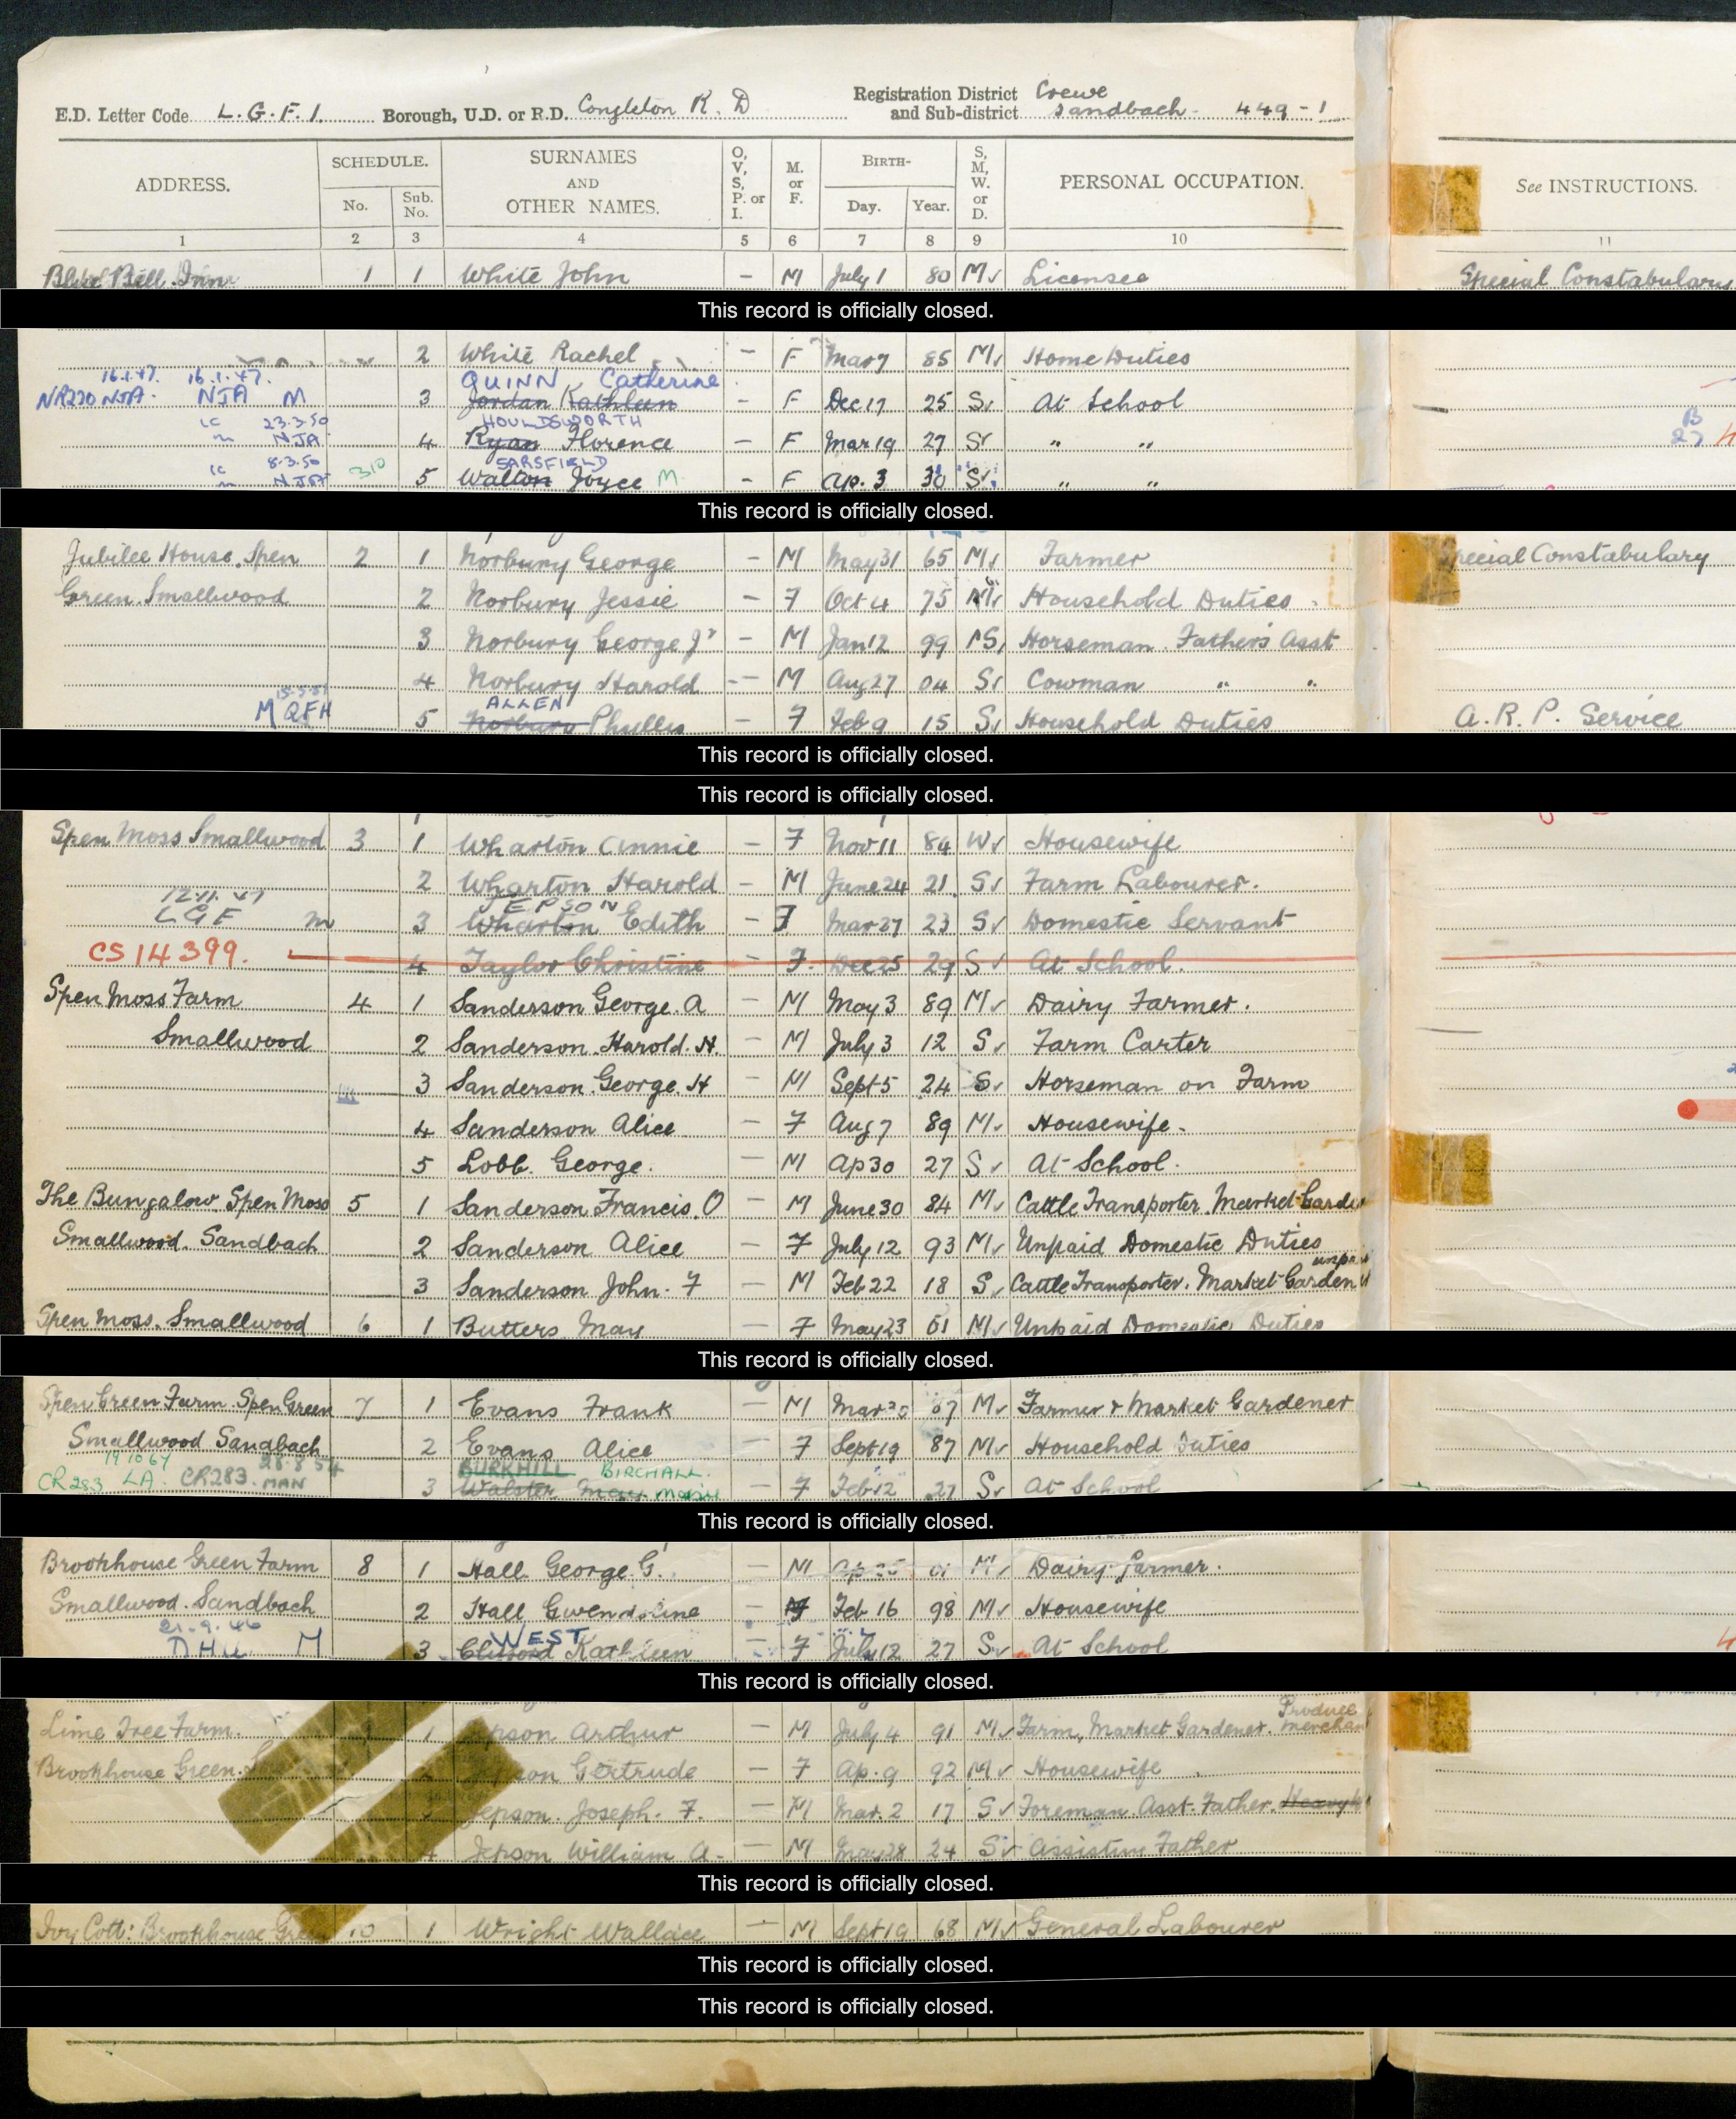 E.D. Letter Code L.G.F.1. Borough, U.D. or R.D. Congleton R.D Registration District and Sub-district Crewe Sandbach 449-1
ADDRESS. SCHEDULE. No. Sub. No. SURNAMES AND OTHER NAMES. O, V, S, P. or I. M. or F. BIRTH- Day. Year. S, M, W. or D. PERSONAL OCCUPATION. See INSTRUCTIONS.
1 2 3 4 5 6 7 8 9 10 11
Bell Inn 1 1 White John - M July 1 80 M Licensee Special Constabulary
This record is officially closed.
2 White Rachel - F Mar 7 85 M Home Duties
16.1.47. 16.1.47. QUINN Catherine
NR230 NJA. NJA M 3 Jordan Kathleen - F Dec 17 25 S At School
23.3.50 HOULDSWORTH
NJA 4 Ryan Florence - F Mar 19 27 S " "
8.3.50 SARSFIELD
NJA 310 5 Walton Joyce M - F Ap. 3 30 S " "
This record is officially closed.
Jubilee House, Spen 2 1 Norbury George - M May 31 65 M Farmer Special Constabulary
Green. Smallwood 2 Norbury Jessie - F Oct 4 75 M Household Duties
3 Norbury George Jr - M Jan 12 99 S Horseman. Father's Asst
4 Norbury Harold - M Aug 27 04 S Cowman " "
ALLEN
M QFH 5 Norbury Phyllis - F Feb 9 15 S Household Duties A.R.P. Service
This record is officially closed.
This record is officially closed.
Spen Moss Smallwood 3 1 Wharton Annie - F Nov 11 84 W Housewife
2 Wharton Harold - M June 24 21 S Farm Labourer.
12.11.47 JEPSON
LGF m 3 Wharton Edith - F Mar 27 23 S Domestic Servant
CS 14399. 4 Taylor Christine - F. Dec 25 29 S At School.
Spen Moss Farm 4 1 Sanderson George. A - M May 3 89 M Dairy Farmer.
Smallwood 2 Sanderson. Harold. H. - M July 3 12 S Farm Carter
3 Sanderson. George. H - M Sept 5 24 S Horseman on Farm
4 Sanderson Alice - F Aug 7 89 M Housewife.
5 Lobb. George. - M Ap 30 27 S At School.
The Bungalow. Spen Moss 5 1 Sanderson Francis. O - M June 30 84 M Cattle Transporter. Market
Smallwood. Sandbach 2 Sanderson Alice - F July 12 93 M Unpaid Domestic Duties
3 Sanderson John. F - M Feb 22 18 S Cattle Transporter. Market
Spen Moss. Smallwood 6 1 Butters May - F May 23 01 M Unpaid Domestic Duties
This record is officially closed.
Spen Green Farm. Spen Green 7 1 Evans Frank - M Mar M Farmer & Market Gardener
Smallwood Sandbach 2 Evans Alice - F Sept 19 87 M Household Duties
BURKHILL BIRCHALL.
CR283 LA. CR283. MAN 3 Walster May - F Feb 12 27 S At School
This record is officially closed.
Brookhouse Green Farm 8 1 Hall George. G. - M Ap 01 M Dairy farmer.
Smallwood. Sandbach 2 Hall Gwendoline - F Feb 16 98 M Housewife
21.9.46 WEST
DHU M 3 Clifford Kathleen - F July 12 27 S At School
This record is officially closed.
Lime Tree Farm. 1 Arthur - M July 4 91 M Farm, Market Gardener. Produce
Brookhouse Green. Gertrude - F Ap. 9 92 M Housewife
Jepson. Joseph. F. - M Mar. 2 17 S Foreman Asst. Father.
4 Jepson William A - M May 28 24 S Assisting Father
This record is officially closed.
Ivy Cott: Brookhouse Green 10 1 Wright Wallace - M Sept 19 68 M General Labourer
This record is officially closed.
This record is officially closed.